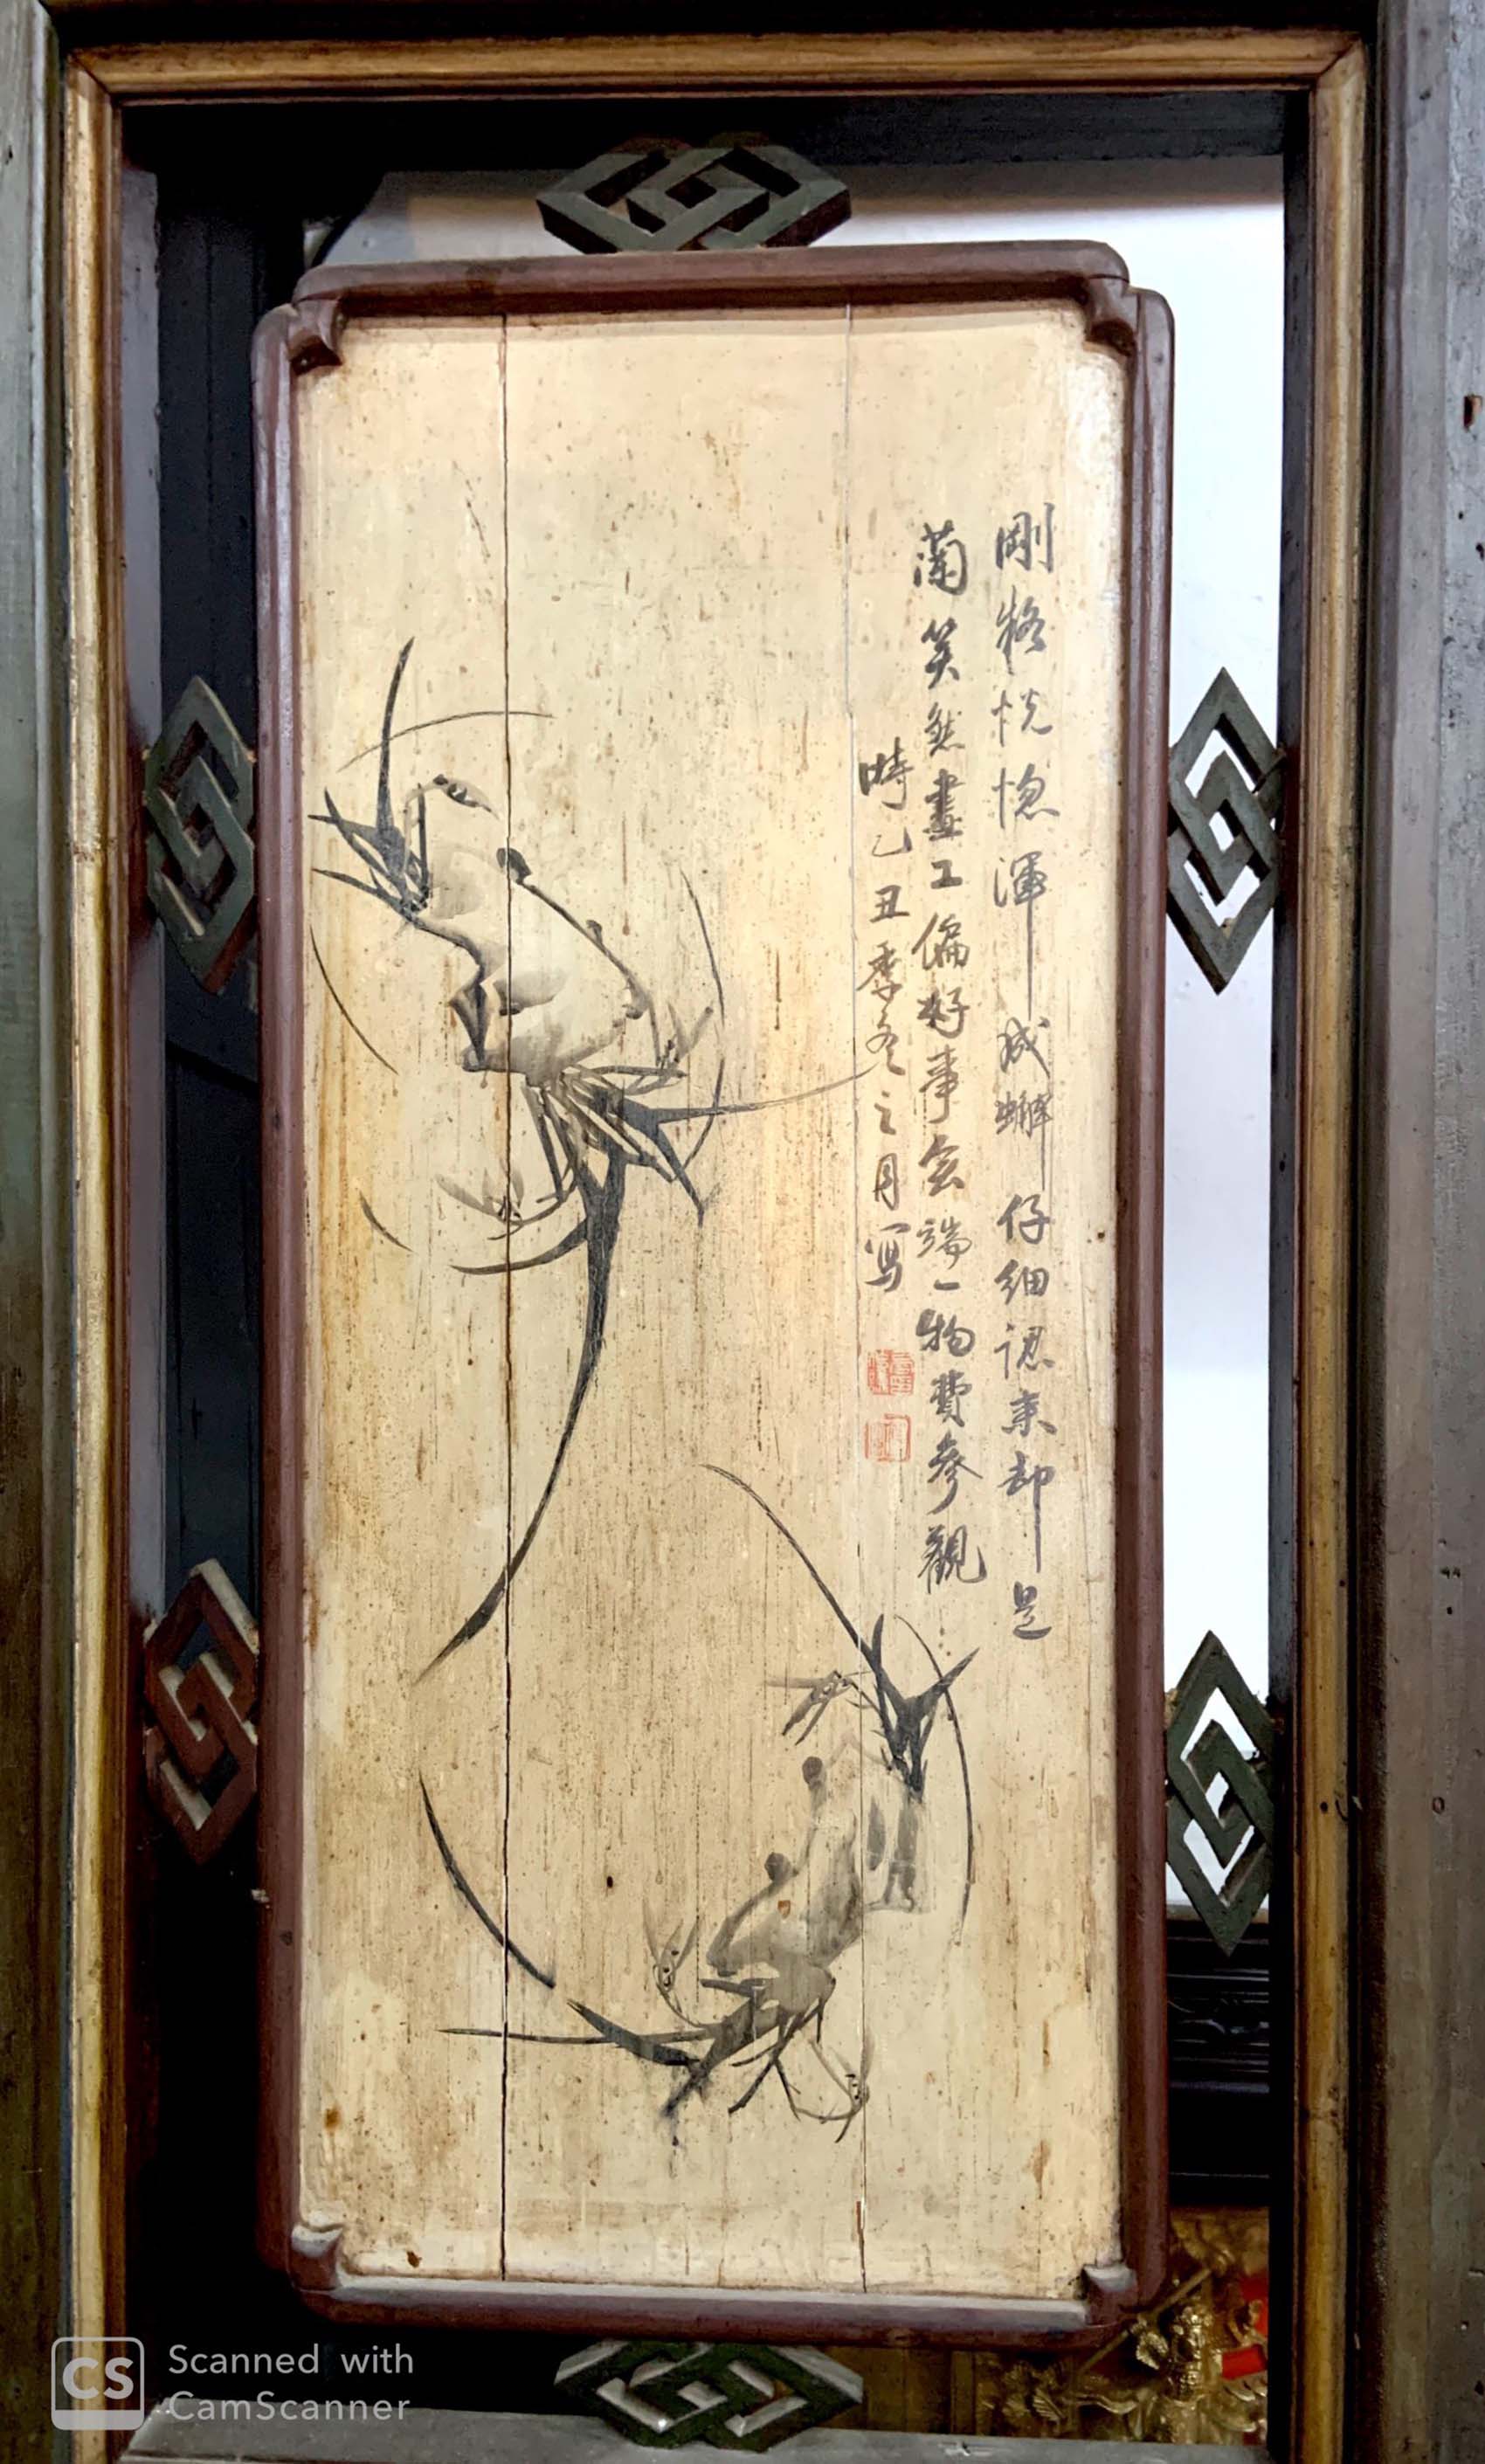 剛柊恍惚渾成蠏仔細認来却是
蘭笑然畫工偏好事会端一物費參觀
時乙丑季冬之月写
Scanned with
CamScanner
CS